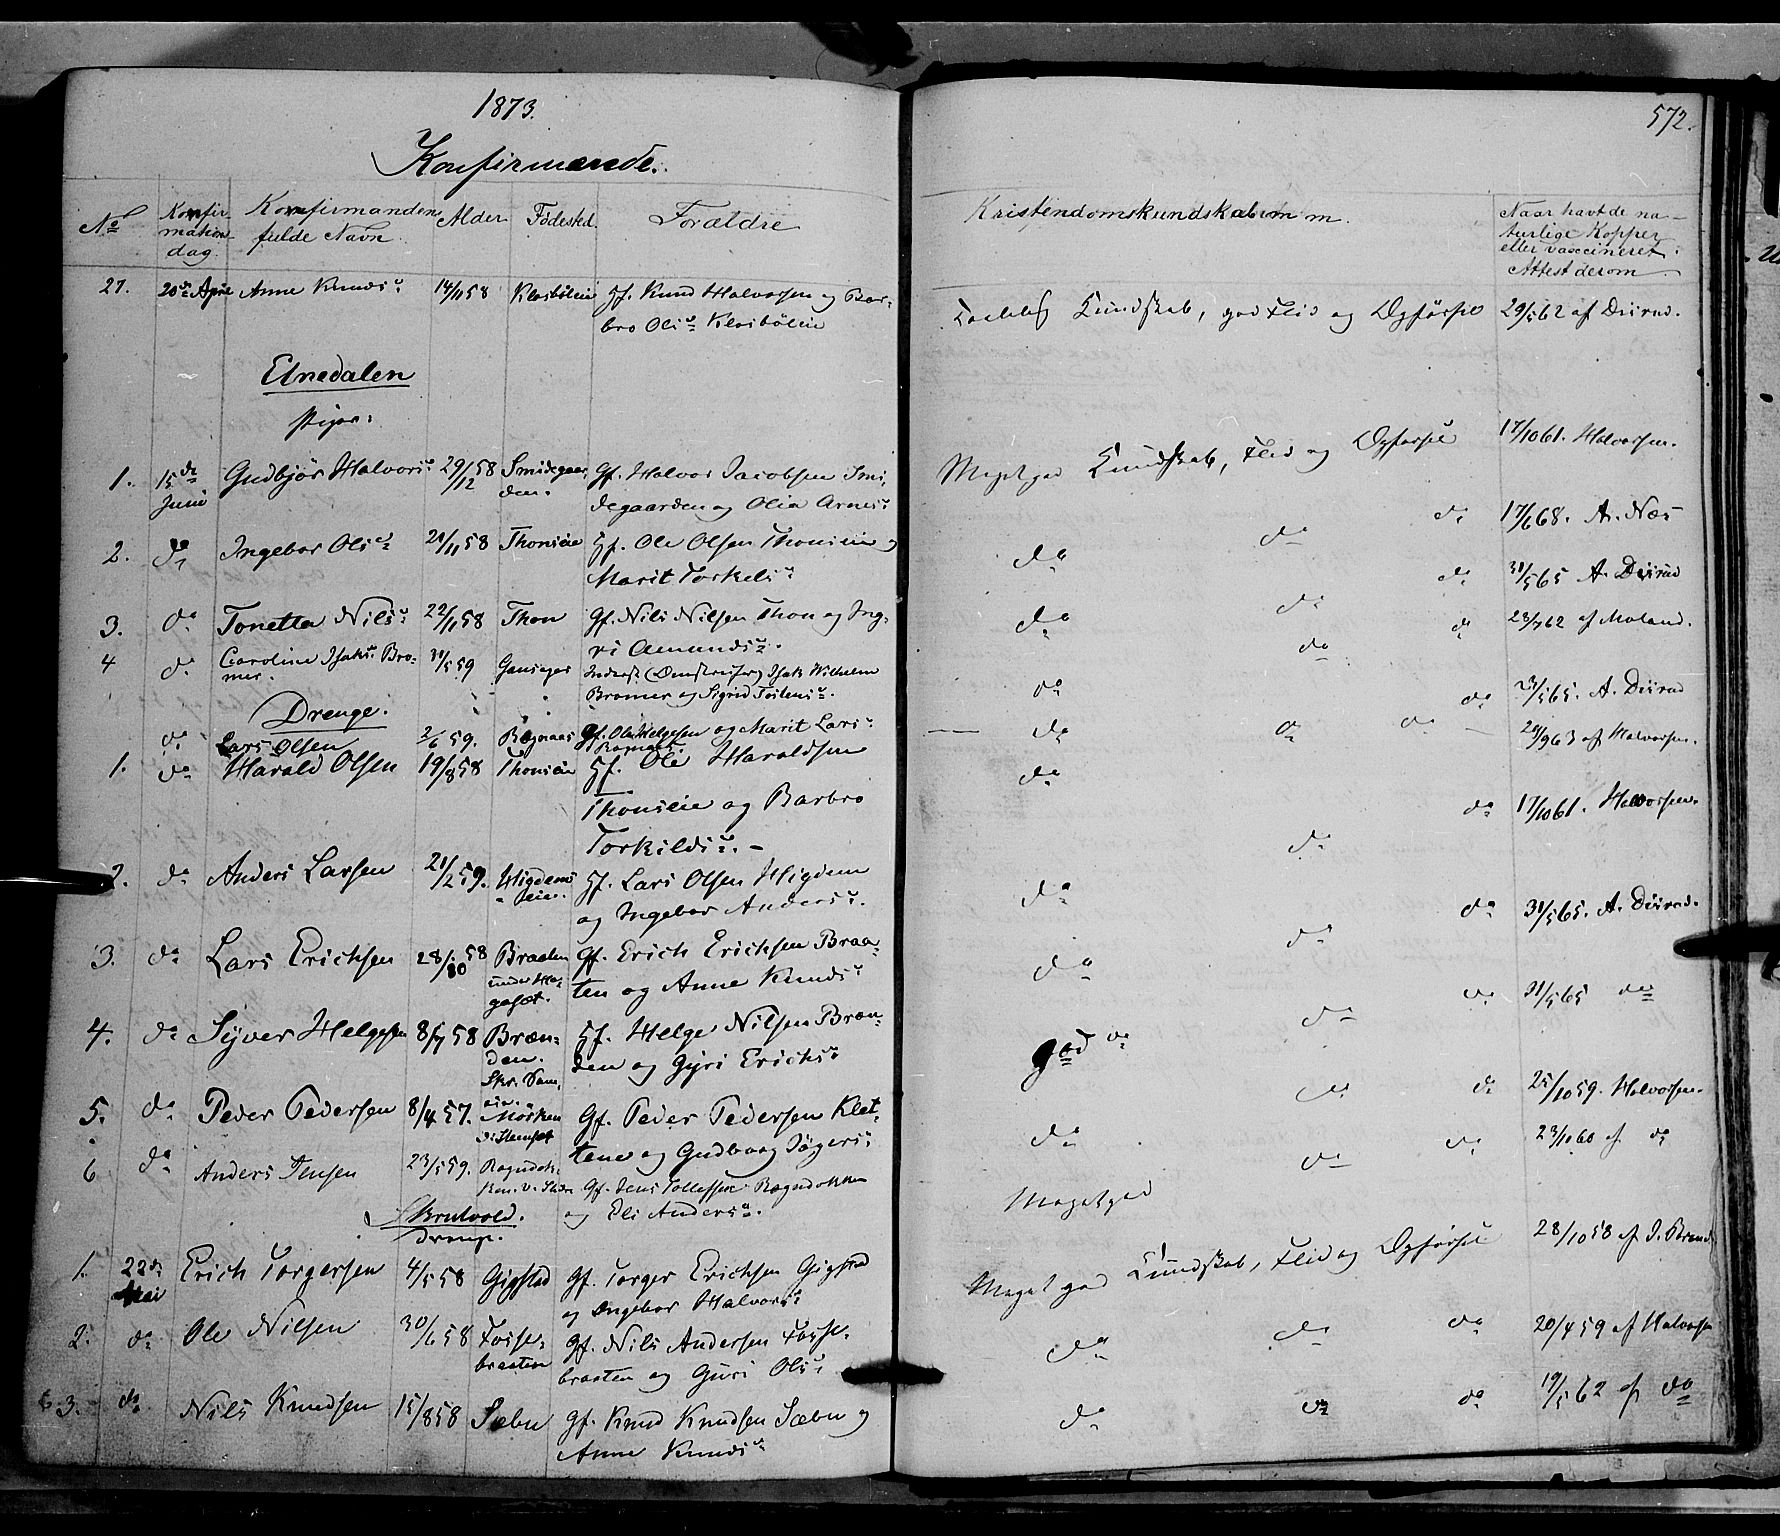 1873.
Konfirmerede.
572.
No
Konfir
mations
dag.
Konfirmandens
fulde Navn.
Alder
Fødested.
Forældre
Kristendomskundskab m m.
Naar havt de na-
turlige Kopper
eller vaccineret.
Attest derom
27. 20de April Anne Knudsd. 14/11 58 Gf. Knud Halvorsen og Bar-
bro Olsd. Kundskab, god Flid og Opførsel 29/5 62 af Diirud.
Etnedalen
Piger:
1. 15de
Juni Gudbjør Halvorsd. 29/12 58 Smidegaar-
den. Gf. Halvor Jacobsen Smi-
degaarden og Olia Arnesd. Meget god Kundskab, Flid og Opførsel 17/10 61. Halvorsen.
2. do Ingebor Olsd. 20/11 58 Thonseie Hf. Ole Olsen Thonseie og
Marit Torkelsd. do do do 17/6 68. A. Næs
3. do Tonetta Nilsd. 22/11 58 Thon Gf. Nils Nilsen Thon og Ing-
ri Amundsd. do do do 31/5 65 A. Diirud
4 do Caroline Isaksd. Bro-
mer. 31/5 59 Isak Wilhelm
Bromer og Sigrid do do do 28/7 62 af Moland.
Drenge.
do Lars Olsen 2/6 59. Bøgnaas Gf. Ole Helgesen og Marit Larsd.
do do do 23/5 65. A. Diirud
1. do Harald Olsen 19/8 58 Thonseie Hf. Ole Haraldsen
Thonseie og Barbro
Torkildsd. - do do do 17/10 61. Halvorsen.
29/9 63 af Halvorsen.
2. do Anders Larsen 21/2 59. Higdems
eie. Hf. Lars Olsen Higdem
og Ingebor Andersd. do do do 31/5 65. A. Diirud.
3. do Lars Erichsen 28/10 58 Braaten
under Ha-
gaset. Gf. Erich Erichsen Braa-
ten og Anne Knudsd. do do do 31/5 65 do
4. do Syver Helgesen 8/7 58 Bræn-
den. Hf. Helge Nilsen Bræn-
den og Gyri Erichsd. god do do do 25/10 59. Halvorsen.
5. do Peder Pedersen 8/4 57. Mørken
Gf. Peder Pedersen Klet-
tene og Gudbør do do do 23/10 60 af do
6 do Anders Jensen 23/5 59. Gf. Jens Tollefsen Bøgndokken
og Eli Andersd. Meget god 28/10 58 af J. Brænd
Bruvold.
Drenge.
1. 22de
Mai Erich Torgersen 4/5 58 Gigstad Gf. Torger Erichsen Gigstad
og Ingebor Halvorsd. Meget god Kundskab, Flid og Opførsel
2. do Ole Nilsen 30/6 58 Fosse-
braaten Gf. Nils Andersen Fosse-
braaten og Guri Olsd. do do do 20/4 59 af Halvorsen
3. do Nils Knudsen 15/8 58 Sæbu Gf. Knud Knudsen Sæbu og
Anne Knudsd. do do do 19/5 62 af do